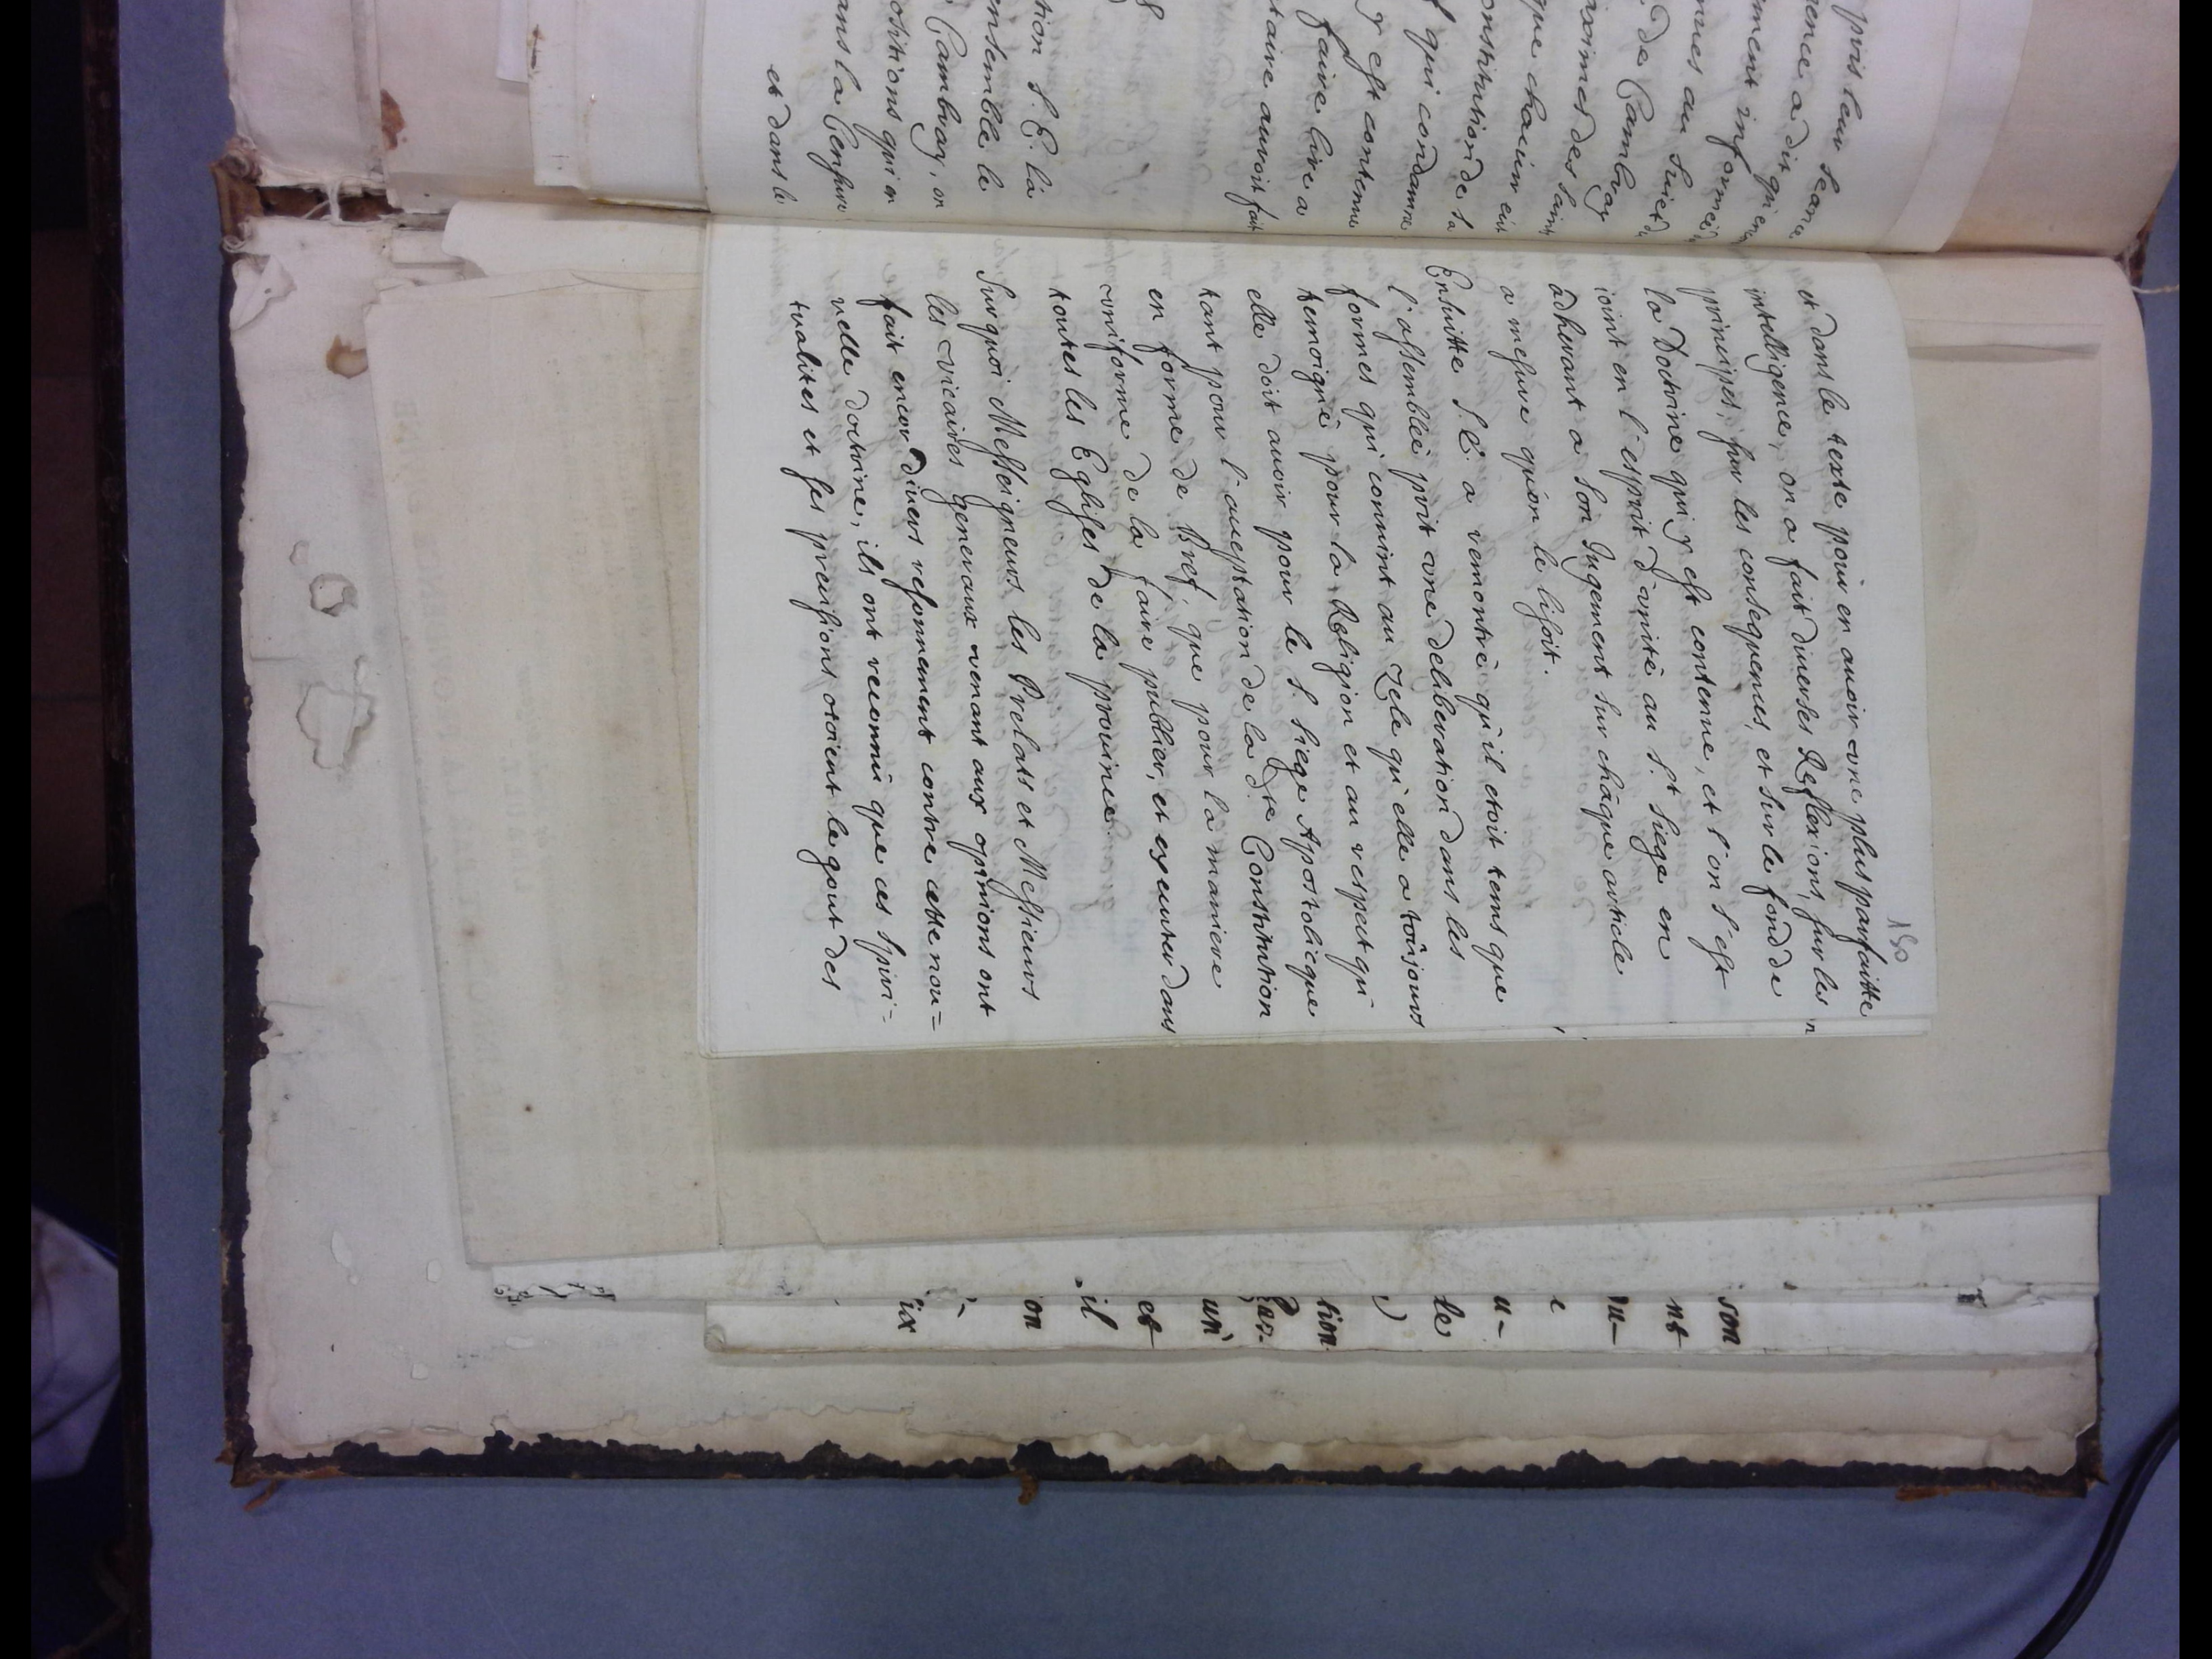 pris leur seance
ence a dit qu'en
ment informée
nnes au Suiet d
de Cambray
aximes des Saints
que chacun eut
onstitution de Sa
t qui condamne
y est contenue
faire lire a
taire auroit fait
tion S. E. la
ensemble le
Cambray, on
ositions qui en
ans la Censure
et dans le
150
et dans le texte pour en auoir une plus parfaitte
intelligence, on a fait diuerses Reflexions, sur les
principes, sur les consequences, et sur le fond de
la Doctrine qui y est contenue, et l'on s'est
ioint en l'esprit d'unité au S.t Siege en
adherant a son Iugement sur châque article
a mesure qu'on le lisoit.
Ensuitte S. E. a remontré qu'il etoit tems que
l'assemblée prit une deliberation dans les
formes qui convint au Zele qu'elle a toûjours
temoigné pour la Religion et au respect qu'
elle doit auoir pour le S. Siege Apostolicque
tant pour l'acceptation de la d.te Constitution
en forme de Bref, que pour la maniere
uniforme de la faire publier, et executer dans
toutes les Eglises de la prouince.
Surquoi Messeigneurs les Prelats et Messieurs
les vicaires generaux venant aux opinions ont
fait encor diuers resonnement contre cette nou=
velle doctrine, ils ont reconnû que ces Spiri=
tualites et ses precisions otoient le gout des
son
nt
u-
e
u-
le
)
tion
Cas-
un'
et
il
on
ix